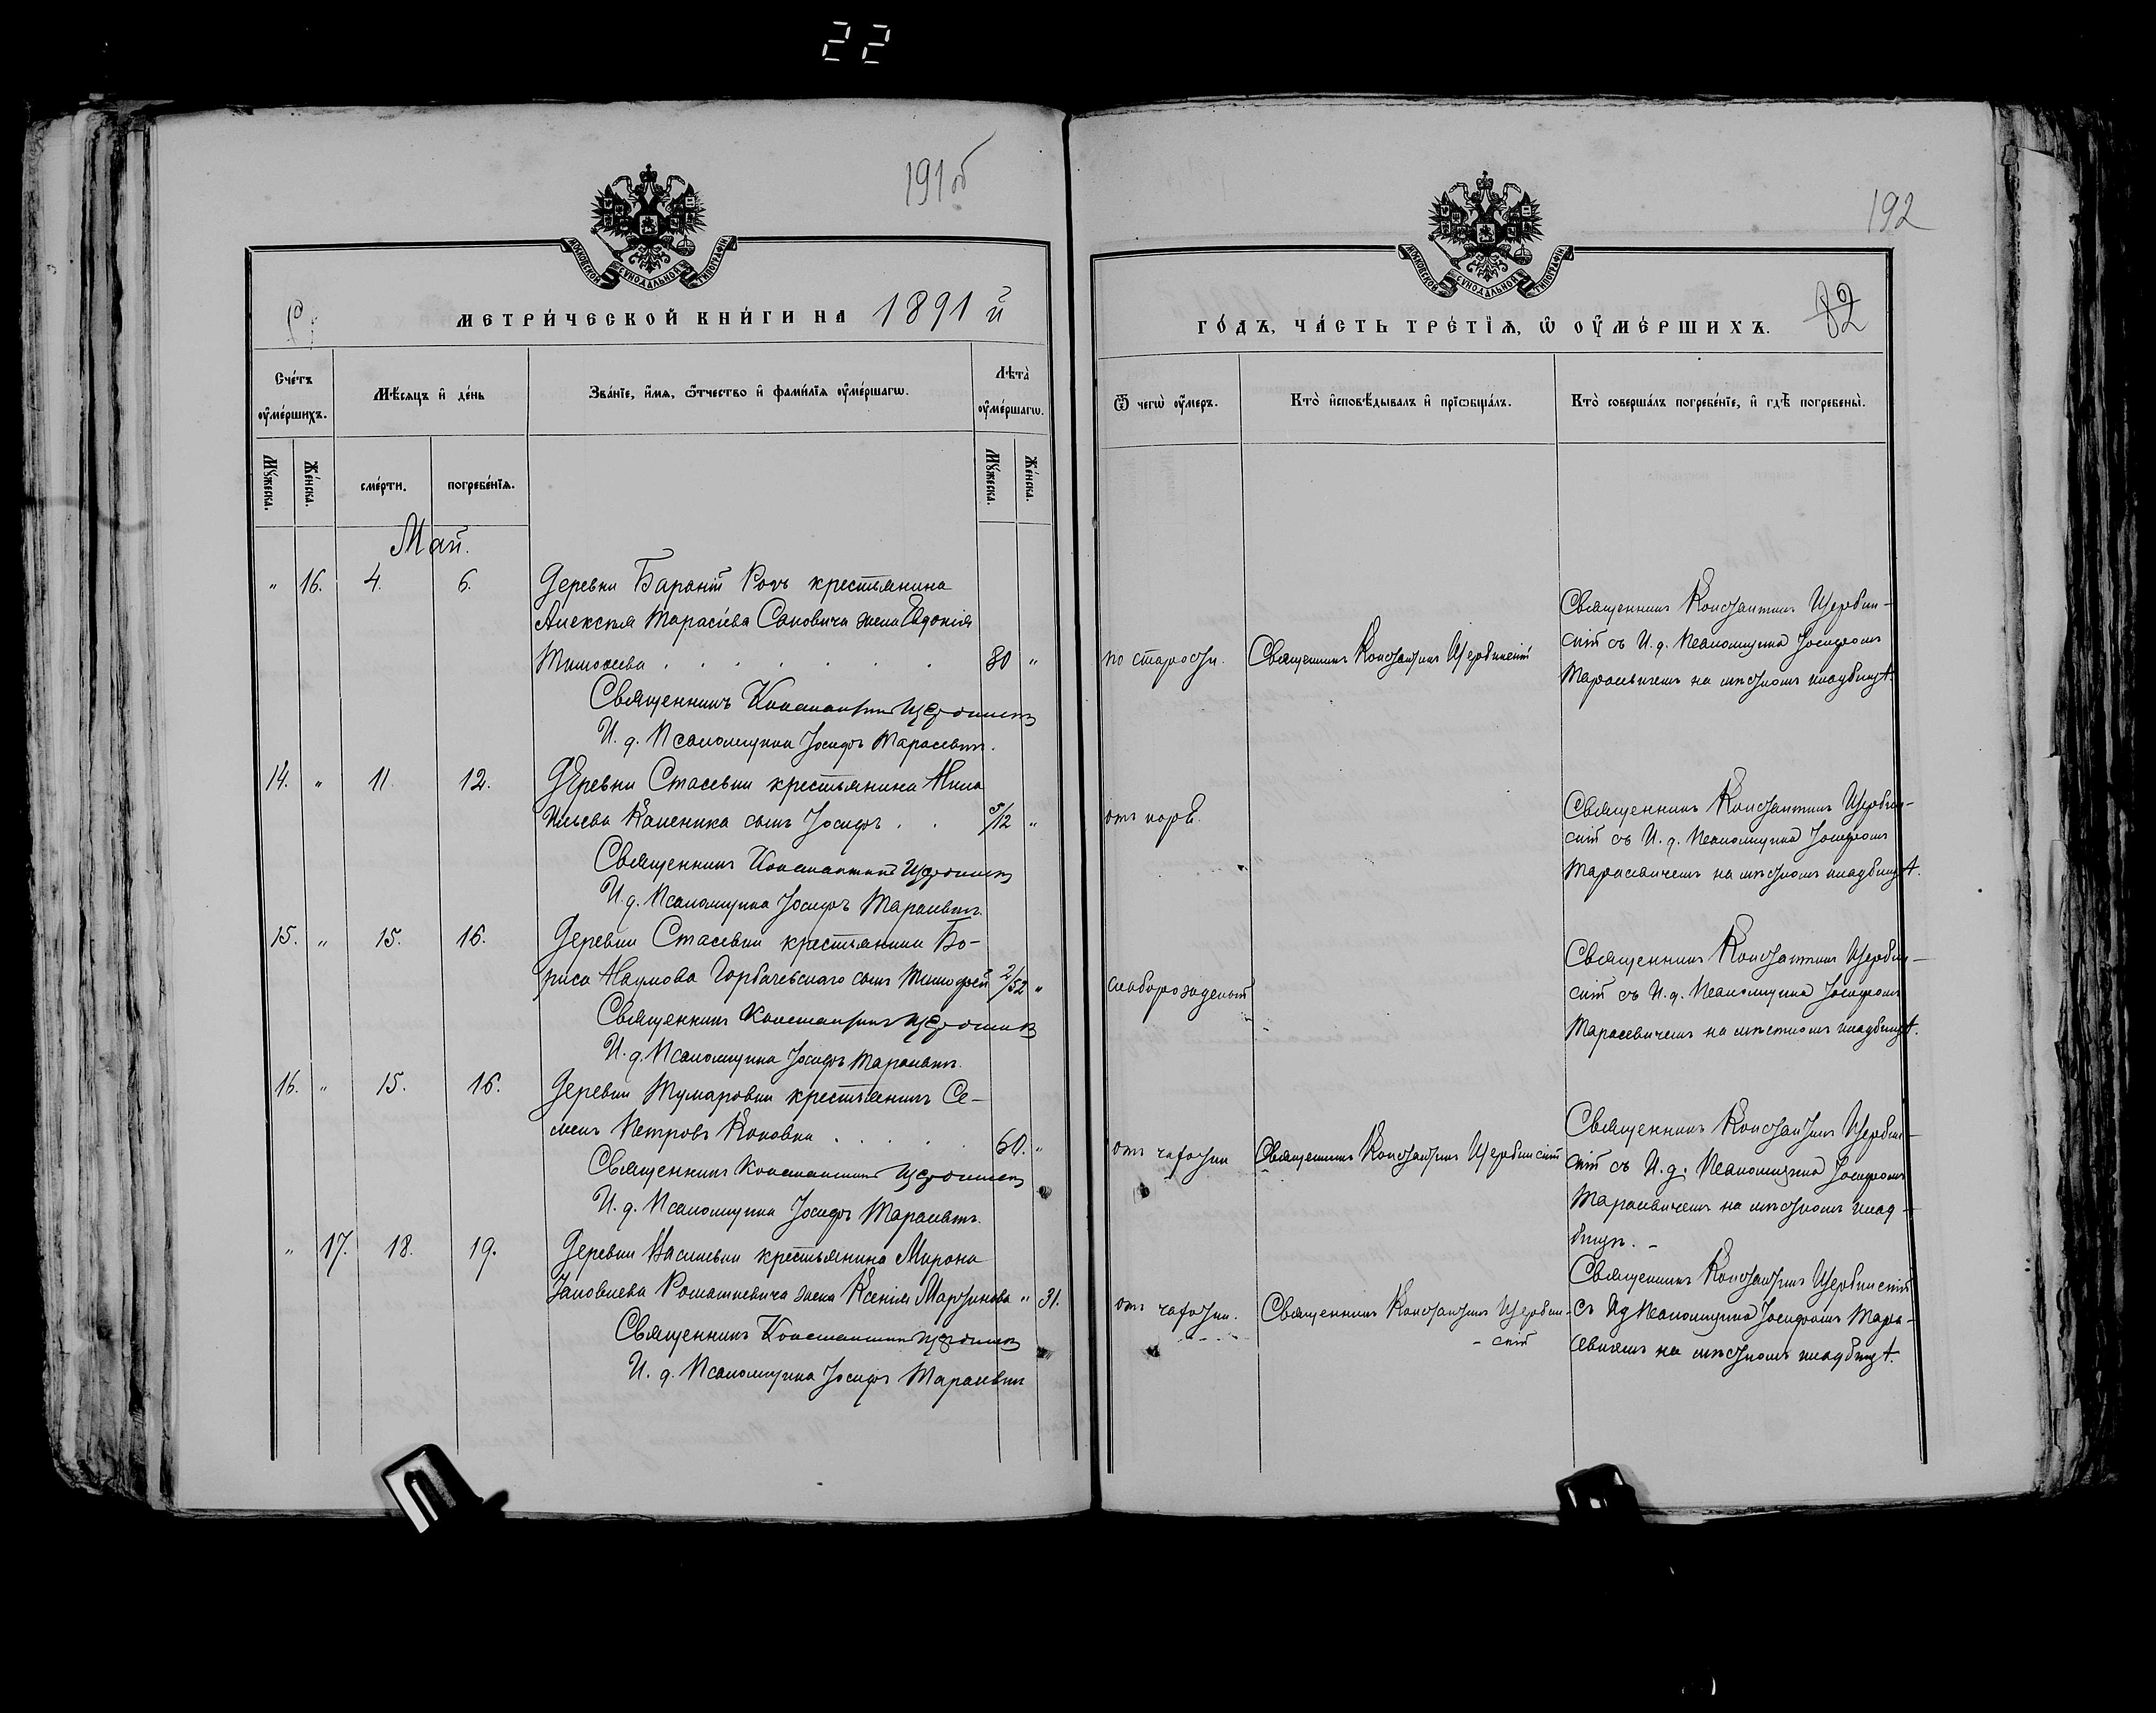 22
191об
МОСКОВСКОЙ СѴНОДАЛЬНОЙ ТИПОГРАФІИ
МЕТРИ́ЧЕСКОЙ КНИ́ГИ НА 1891 й
Сче́тъ оу҆ме́ршихъ.
Мѣ́сяцъ и҆ де́нь
Зва́нїе, и҆́мѧ, ѻ҆́тчество и҆ фами́лїѧ оу҆ме́ршагѡ.
Лѣта̀ оу҆ме́ршагѡ.
Мꙋ́жеска.
Же́нска.
сме́рти.
погребе́нїѧ.
Мꙋ́жеска.
Же́нска.
Май.
" 16. 4. 6. Деревни Бараній Ровъ крестьянина
Алексѣя Тарасіева Сановича жена Евдокія
Тимофеева . . . . . . . 80 "
Священникъ Константинъ Щербинскій
И. д. Псаломщика Іосифъ Тарасевичъ.
14. " 11. 12. Деревни Стасевки крестьянина
Ильева Каленика сынъ Іосифъ . . 5/12 "
Священникъ Константинъ Щербинскій
И. д. Псаломщика Іосифъ Тарасевичъ.
15. " 15. 16. Деревни Стасевки крестьянина Бо-
риса Наумова Горбачевскаго сынъ Тимофей 2/52 "
Священникъ Константинъ Щербинскій
И. д. Псаломщика Іосифъ Тарасевичъ.
16. " 15. 16. Деревни Тумаровки крестьянинъ Се-
менъ Петровъ Коновка . . . . . 60. "
Священникъ Константинъ Щербинскій
И. д. Псаломщика Іосифъ Тарасевичъ.
" 17. 18. 19. Деревни Василевки крестьянина Мирона
Іаковлева Ромашкевича жена Ксенія Мартинова " 31.
Священникъ Константинъ Щербинскій
И. д. Псаломщика Іосифъ Тарасевичъ
192
МОСКОВСКОЙ СѴНОДАЛЬНОЙ ТИПОГРАФІИ
ГО́ДЪ, ЧА́СТЬ ТРЕ́ТЇѦ, Ѡ҆ ОУ҆МЕ́РШИХЪ. 82
Ѿ чегѡ̀ оу҆́меръ.
Кто̀ и҆сповѣ́дывалъ и҆ прїѡбща́лъ.
Кто̀ соверша́лъ погребе́нїе, и҆ гдѣ̀ погребены̀.
по старости.
Священникъ Константинъ Щербинскій
Священникъ Константинъ Щербин-
скій съ И. д. Псаломщика Іосифомъ
Тарасевичемъ на мѣстномъ кладбищѣ.
отъ корѣ.
Священникъ Константинъ Щербин-
скій съ И. д. Псаломщика Іосифомъ
Тарасевичемъ на мѣстномъ кладбищѣ.
слаборожденый
Священникъ Константинъ Щербин-
скій съ И. д. Псаломщика Іосифомъ
Тарасевичемъ на мѣстномъ кладбищѣ.
отъ чахотки
Священникъ Константинъ Щербинскій
Священникъ Константинъ Щербин-
скій съ И. д. Псаломщика Іосифомъ
Тарасевичемъ на мѣстномъ клад-
бищѣ. -
отъ чахотки.
Священникъ Константинъ Щербин-
- скій
Священникъ Константинъ Щербинскій
съ Ид Псаломщика Іосифомъ Тара-
севичемъ на мѣстномъ кладбищѣ.